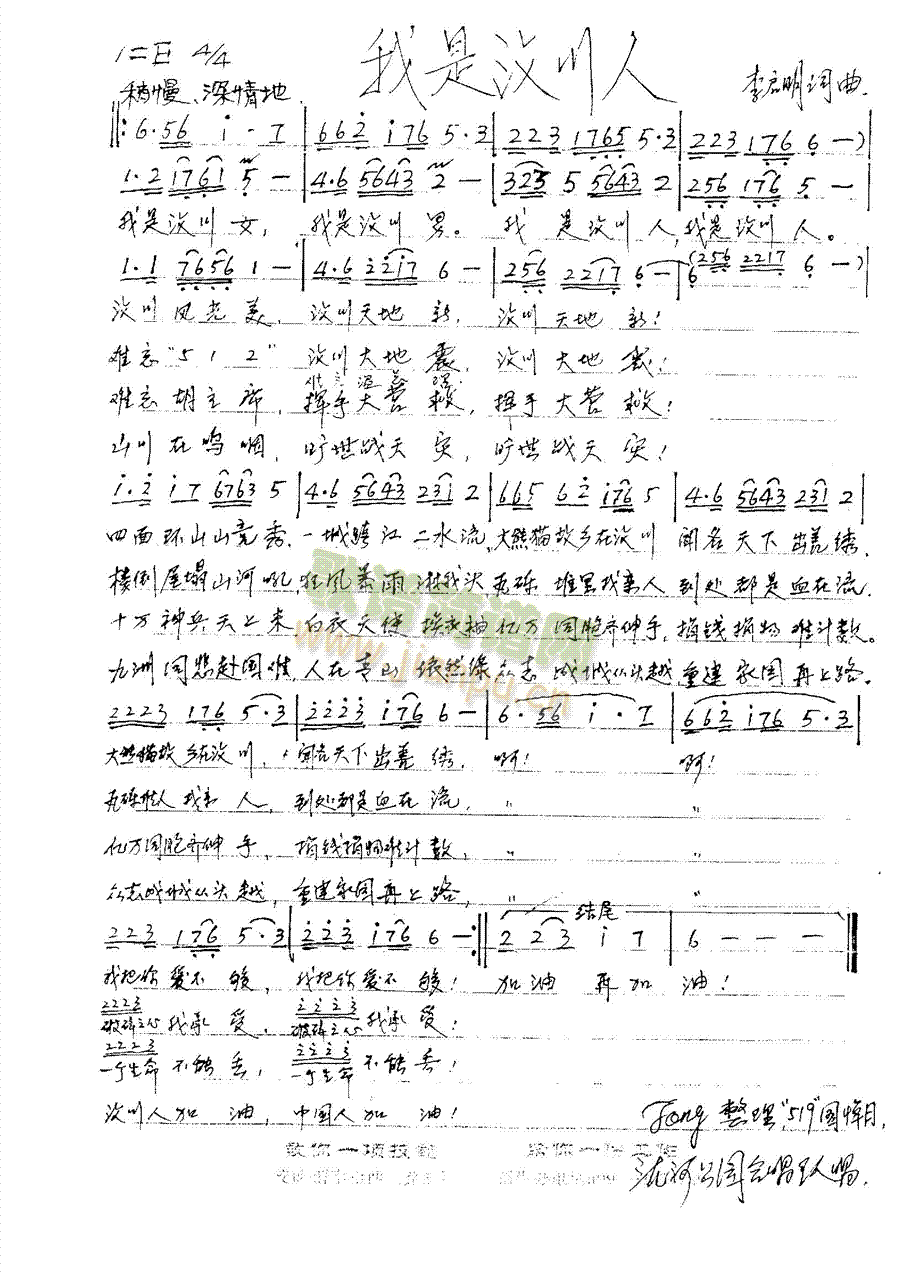 我是汶川人
1=E 4/4
稍慢、深情地
李启明词曲
6·56 i - 7 | 662 176 5·3 | 223 1765 5·3 | 223 176 6 —)
1·2 1761 5 — | 4·6 5643 2 — | 325 5 5643 2 | 256 176 5 —
我是汶川女, 我是汶川男。 我是汶川人, 我是汶川人。
1·1 7656 1 — | 4·6 2217 6 — | 256 2217 6 — | 6 (256 2217 6 —)
汶川风光美, 汶川天地新, 汶川天地新!
难忘"512" 汶川大地震, 汶川大地震!
难忘胡主席, 挥手大营救, 挥手大营救!
山川在呜咽, 旷世战天灾, 旷世战天灾!
1·2 17 6763 5 | 4·6 5643 231 2 | 665 62 176 5 | 4·6 5643 231 2
四面环山山竞秀, 一城跨江二水流, 大熊猫故乡在汶川 闻名天下出羌绣,
楼倒屋塌山河吼, 狂风暴雨淋我头, 瓦砾堆里找亲人 到处都是血在流,
十万神兵天上来 白衣天使 亿万同胞齐伸手, 捐钱捐物难计数。
九洲同悲赴国难, 人在青山依然绿 众志成城从头越, 重建家园再上路。
2223 176 5·3 | 2223 176 6 — | 6·56 i · 7 | 662 176 5·3
大熊猫故乡在汶川, 闻名天下出羌绣, 啊! 啊!
瓦砾 找亲人, 到处都是血在流, " "
亿万同胞齐伸手, 捐钱捐物难计数, " "
众志成城从头越, 重建家园再上路, " "
结尾
223 176 5·3 | 223 176 6 — :‖ 2 23 i 7 | 6 — — — ‖
我把你爱不够, 我把你爱不够! 加油再加油!
2223 2223
破碎之心我承受, 破碎之心我承受!
2223 2223
一个生命不能丢, 一个生命不能丢!
汶川人加油, 中国人加油!
整理"519"国悼日,
河公园合唱 人唱
歌谱简谱网
www.jianpu.cn
教你一项技能